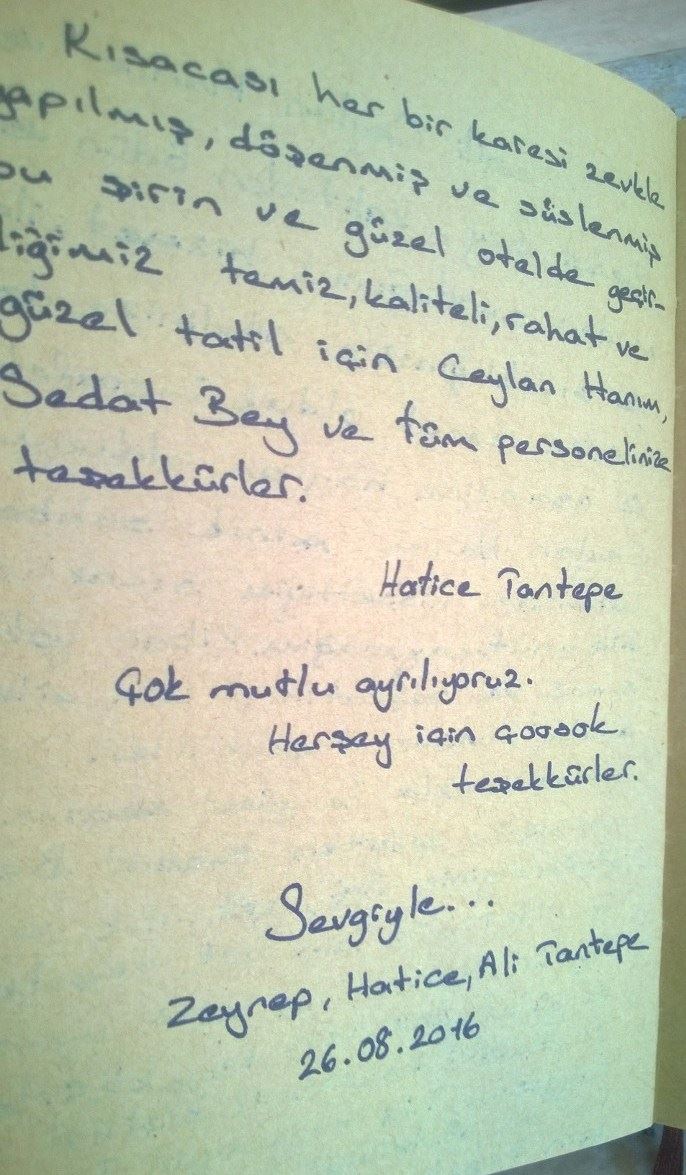 Kısacası her bir karesi zevkle
yapılmış, döşenmiş ve süslenmiş
bu şirin ve güzel otelde geçir-
diğimiz temiz, kaliteli, rahat ve
güzel tatil için Ceylan Hanım,
Sedat Bey ve tüm personelinize
teşekkürler.
Hatice Tantepe
Çok mutlu ayrılıyoruz.
Herşey için çooook
teşekkürler.
Sevgiyle...
Zeynep, Hatice, Ali Tantepe
26.08.2016